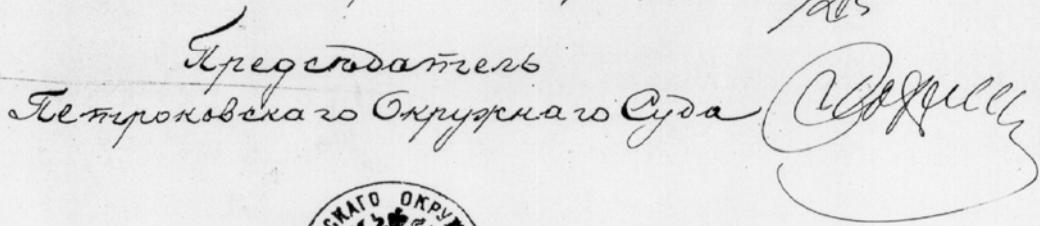 Предсѣдатель
Петроковскаго Окружнаго Суда
СКАГО ОКРУЖ